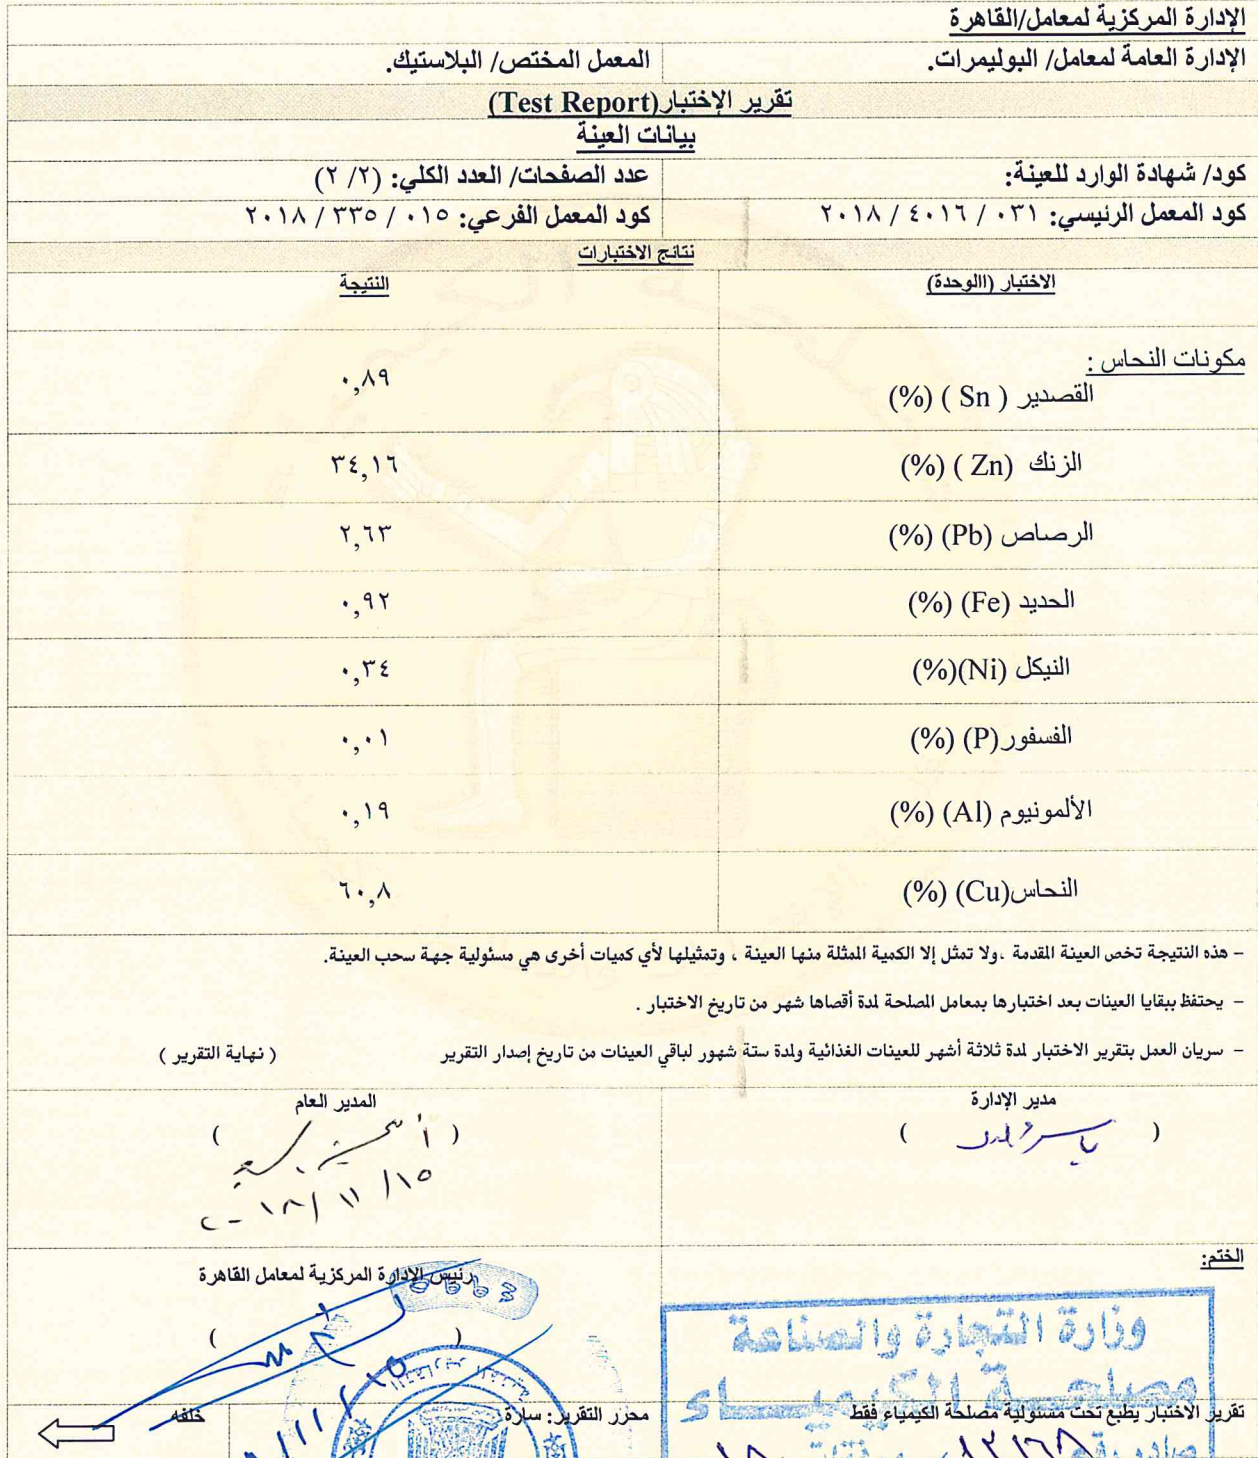 الإدارة المركزية لمعامل/القاهرة
الإدارة العامة لمعامل/ البوليمرات.
المعمل المختص/ البلاستيك.
تقرير الإختبار(Test Report)
بيانات العينة
كود/ شهادة الوارد للعينة:
عدد الصفحات/ العدد الكلي: (٢/ ٢)
كود المعمل الرئيسي: ٠٣١ / ٤٠١٦ / ٢٠١٨
كود المعمل الفرعي: ٠١٥ / ٣٣٥ / ٢٠١٨
نتائج الاختبارات
الاختبار (االوحدة)
النتيجة
مكونات النحاس :
القصدير ( Sn ) (%)
٠,٨٩
الزنك (Zn ) (%)
٣٤,١٦
الرصاص (Pb) (%)
٢,٦٣
الحديد (Fe) (%)
٠,٩٢
النيكل (Ni)(%)
٠,٣٤
الفسفور(P) (%)
٠,٠١
الألمونيوم (Al) (%)
٠,١٩
النحاس(Cu) (%)
٦٠,٨
– هذه النتيجة تخص العينة المقدمة ،ولا تمثل إلا الكمية المثلة منها العينة ، وتمثيلها لأي كميات أخرى هي مسئولية جهة سحب العينة.
– يحتفظ ببقايا العينات بعد اختبارها بمعامل المصلحة لمدة أقصاها شهر من تاريخ الاختبار .
– سريان العمل بتقرير الاختبار لمدة ثلاثة أشهر للعينات الغذائية ولمدة ستة شهور لباقي العينات من تاريخ إصدار التقرير
( نهاية التقرير )
مدير الإدارة
المدير العام
٢٠١٨/ ١١ /١٥
الختم:
رئيس الإدارة المركزية لمعامل القاهرة
وزارة التجارة والصناعة
مصلحة الكيمياء
تقرير الاختبار يطبع تحت مسئولية مصلحة الكيمياء فقط
محرر التقرير: سارة
خلفه
صادر رقم